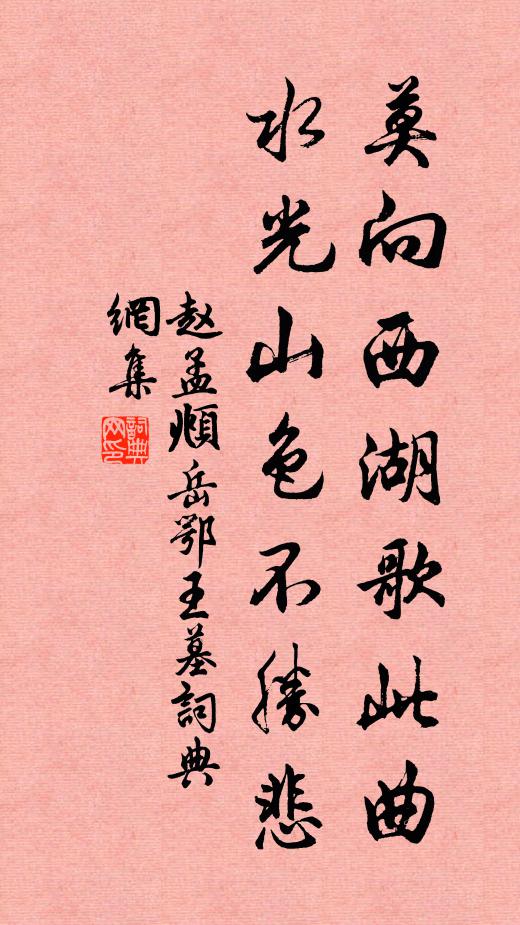 莫向西湖歌此曲
水光山色不勝悲
赵孟頫岳鄂王墓詞典
網集
詞典
网印